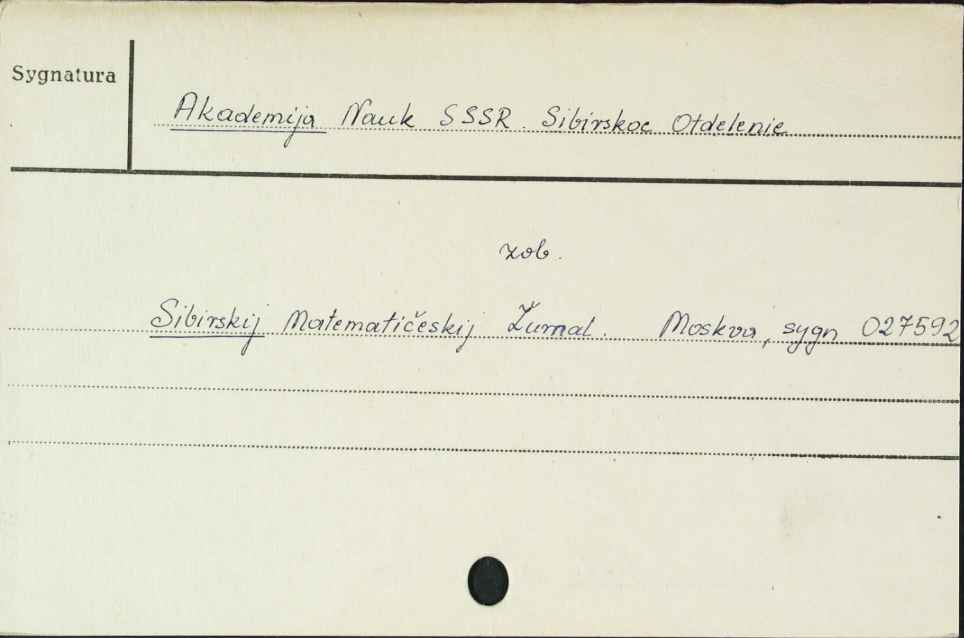 Sygnatura
Akademija Nauk SSSR. Sibirskoe Otdelenie
zob.
Sibirskij Matematičeskij Žurnal. Moskva, sygn 027592